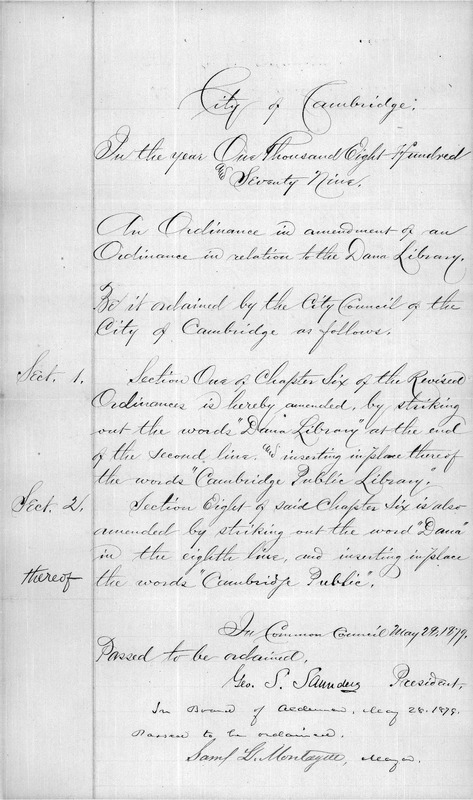 City of Cambridge.
In the year One Thousand Eight Hundred
and
Seventy Nine.
An Ordinance in amendment of an
Ordinance in relation to the Dana Library.
Be it ordained by the City Council of the
City of Cambridge as follows.
Sect. 1. Section One of Chapter Six of the Revised
Ordinances is hereby amended, by striking
out the words "Dana Library" at the end
of the second line, and inserting in place thereof
the words "Cambridge Public Library.
Sect. 2. Section Eight of said Chapter Six is also
amended by striking out the word "Dana"
in the eighth line, and inserting in place
thereof the words "Cambridge Public".
In Common Council May 28, 1879.
Passed to be ordained.
Geo. S. Saunders President.
In Board of Aldermen, May 28. 1879.
Passed to be ordained.
Saml L. Montague, Mayor.